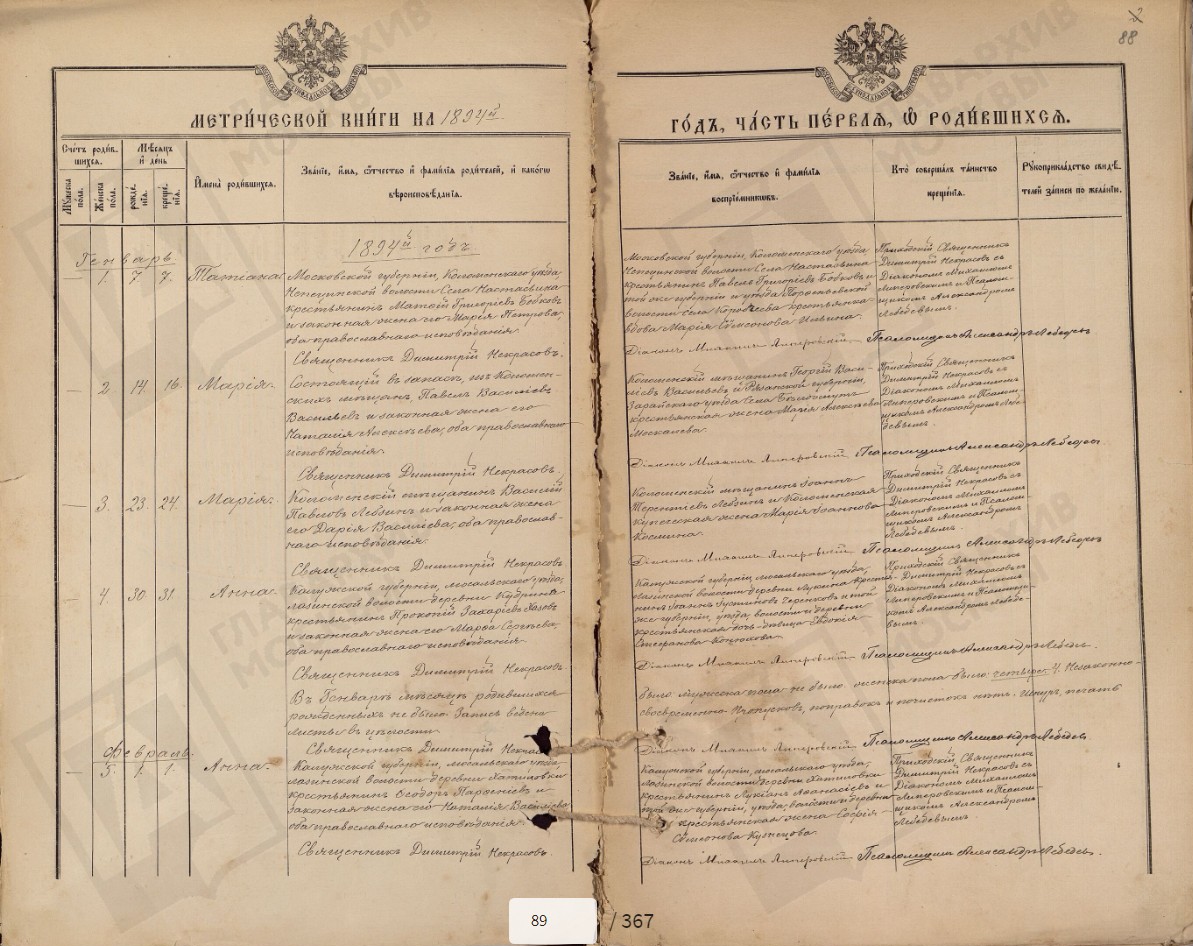 2
88
МЕТРИЧЕСКОЙ КНИГИ НА 1894й
Счетъ родив-
шихся.
Мужеска пола.
Женска пола.
Мѣсяцъ
и день
рожде-
нія.
креще-
нія.
Имена родившихся.
Званіе, имя, отчество и фамилія родителей, и какого
вѣроисповѣданія.
1894й годъ
Генварь
— 1. 7 7. Татіана
Московской губерніи, Коломенскаго уѣзда,
Непецинской волости Села Настасьина
крестьянинъ Матѳій Григоріевъ Бобковъ
и законная жена его Марія Петрова,
оба православнаго исповѣданія.
Священникъ Димитрій Некрасовъ.
— 2 14. 16. Марія.
Состоящій въ запасѣ, изъ Коломен-
скихъ мѣщанъ, Павелъ Василіевъ
Васильевъ и законная жена его
Наталія Алексѣева, оба православнаго
исповѣданія.
Священникъ Димитрій Некрасовъ.
— 3. 23. 24. Марія.
Коломенскій мѣщанинъ Василій
Павловъ Лебзинъ и законная жена
его Дарія Василіева, оба православ-
наго исповѣданія.
Священникъ Димитрій Некрасовъ
— 4. 30 31 Анна.
Калужской губерніи, мосальскаго уѣзда,
волости деревни
крестьянинъ Прокопій Захаріевъ
и законная жена его Марѳа Сергѣева,
оба православнаго исповѣданія.
Священникъ Димитрій Некрасовъ.
Въ Генварѣ мѣсяцѣ родившихся
не было. Запись ведена
листы въ цѣлости.
Священникъ Димитрій Некрасовъ
Февраль.
— 5. 1. 1. Анна.
Калужской губерніи, мосальскаго уѣзда,
волости деревни Хатиловки
крестьянинъ Ѳеодоръ и
законная жена его Наталія Василіева
оба православнаго исповѣданія.
Священникъ Димитрій Некрасовъ.
ГОДЪ, ЧАСТЬ ПЕРВАЯ, Ѡ РОДИВШИХСЯ.
Званіе, имя, отчество и фамилія
воспріемниковъ.
Кто совершалъ таинство
крещенія.
Рукоприкладство свидѣ-
телей записи по желанію.
Московской губерніи, Коломенскаго уѣзда
Непецинской волости Села Настасьина
крестьянинъ Павелъ Григоріевъ Бобковъ и
той же губерніи и уѣзда
волости села крестьянка
вдова Марія Сѵмеонова Ильина.
Приходскій Священникъ
Димитрій Некрасовъ съ
Діакономъ Михаиломъ
и Псалом-
щикомъ Александромъ
Лебедевымъ.
Діаконъ Михаилъ Псаломщикъ Александръ Лебедевъ
Коломенскій мѣщанинъ Георгій Васи-
ліевъ Васильевъ и Рязанской губерніи,
Зарайскаго уѣзда Села
крестьянская жена Марія Алексѣева
Москалева.
Приходскій Священникъ
Димитрій Некрасовъ съ
Діакономъ Михаиломъ
и Псалом-
щикомъ Александромъ Лебе-
девымъ.
Діаконъ Михаилъ Псаломщикъ Александръ Лебедевъ.
Коломенскій мѣщанинъ Іоаннъ
Терентіевъ Лебзинъ и Коломенская
купеческая жена Марія Іоаннова
Приходскій Священникъ
Димитрій Некрасовъ съ
Діакономъ Михаиломъ
и Псалом-
щикомъ Александромъ
Лебедевымъ.
Діаконъ Михаилъ Псаломщикъ Александръ Лебедевъ
Калужской губерніи, мосальскаго уѣзда,
волости деревни Лукина кресть-
янинъ Іоаннъ и той
же губерніи, уѣзда, волости и деревни
крестьянская дочь-дѣвица Евдокія
Приходскій Священникъ
Димитрій Некрасовъ съ
Діакономъ Михаиломъ
и Псаломщи-
комъ Александромъ Лебеде-
вымъ.
Діаконъ Михаилъ Псаломщикъ Александръ Лебедевъ.
было: мужеска пола не было женска пола было: четыре 4. Незаконно-
своевременно. поправокъ и почистокъ нѣтъ. Шнуръ, печать
Діаконъ Михаилъ Псаломщикъ Александръ Лебедевъ
Калужской губерніи, мосальскаго уѣзда,
волости деревни Хатиловки
крестьянинъ Лукіанъ Аѳанасіевъ и
той же губерніи, уѣзда, волости и деревни
крестьянская жена Софія
Сѵмеонова Кузнецова.
Приходскій Священникъ
Димитрій Некрасовъ съ
Діакономъ Михаиломъ
и Псалом-
щикомъ Александромъ
Лебедевымъ.
Діаконъ Михаилъ Псаломщикъ Александръ Лебедевъ.
89 / 367